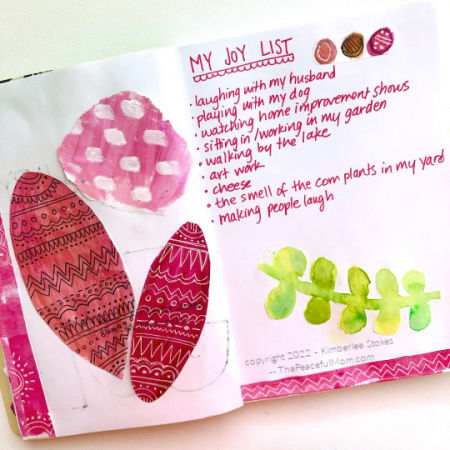 MY JOY LIST
• laughing with my husband
• playing with my dog
• watching home improvement shows
• sitting in/working in my garden
• walking by the lake
• art work
• cheese
• the smell of the corn plants in my yard
• making people laugh
copyright 2022 - Kimberlee Stokes
-- ThePeacefulMom.com